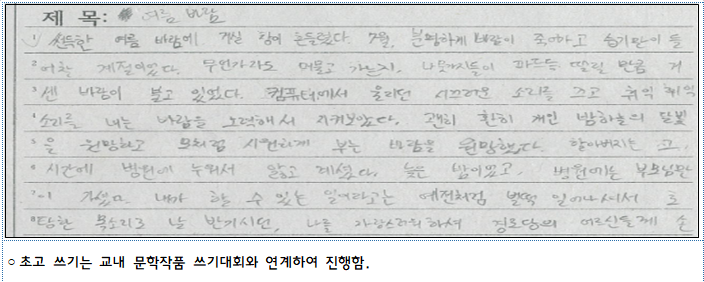 제 목: 여름 바람
1 썬득한 여름 바람에 거실 창이 흔들렸다. 7월, 분명하게 바람이 죽어하고 습기만이 들
2 어찬 계절이었다. 무언가라도 머물고 가는지, 나뭇가지들이 파르르 떨릴 만큼 거
3 센 바람이 불고 있었다. 컴퓨터에서 울리던 시끄러운 소리를 끄고 휘익 휘익
4 소리를 내는 바람을 노력해서 지켜보았다. 괜히 환히 개인 밤하늘의 달빛
5 을 원망하고 모처럼 시원하게 부는 바람을 원망했다. 할아버지는 그
6 시간에 병원에 누워서 앓고 계셨다. 늦은 밤이었고, 병원에는 부모님만
7 이 가셨다. 내가 할 수 있는 일이라고는 예전처럼 벌떡 일어나셔서 호
8 탕한 목소리로 날 반기시던, 나를 자랑스러워하셔 경로당의 어르신들께 손
○ 초고 쓰기는 교내 문학작품 쓰기대회와 연계하여 진행함.